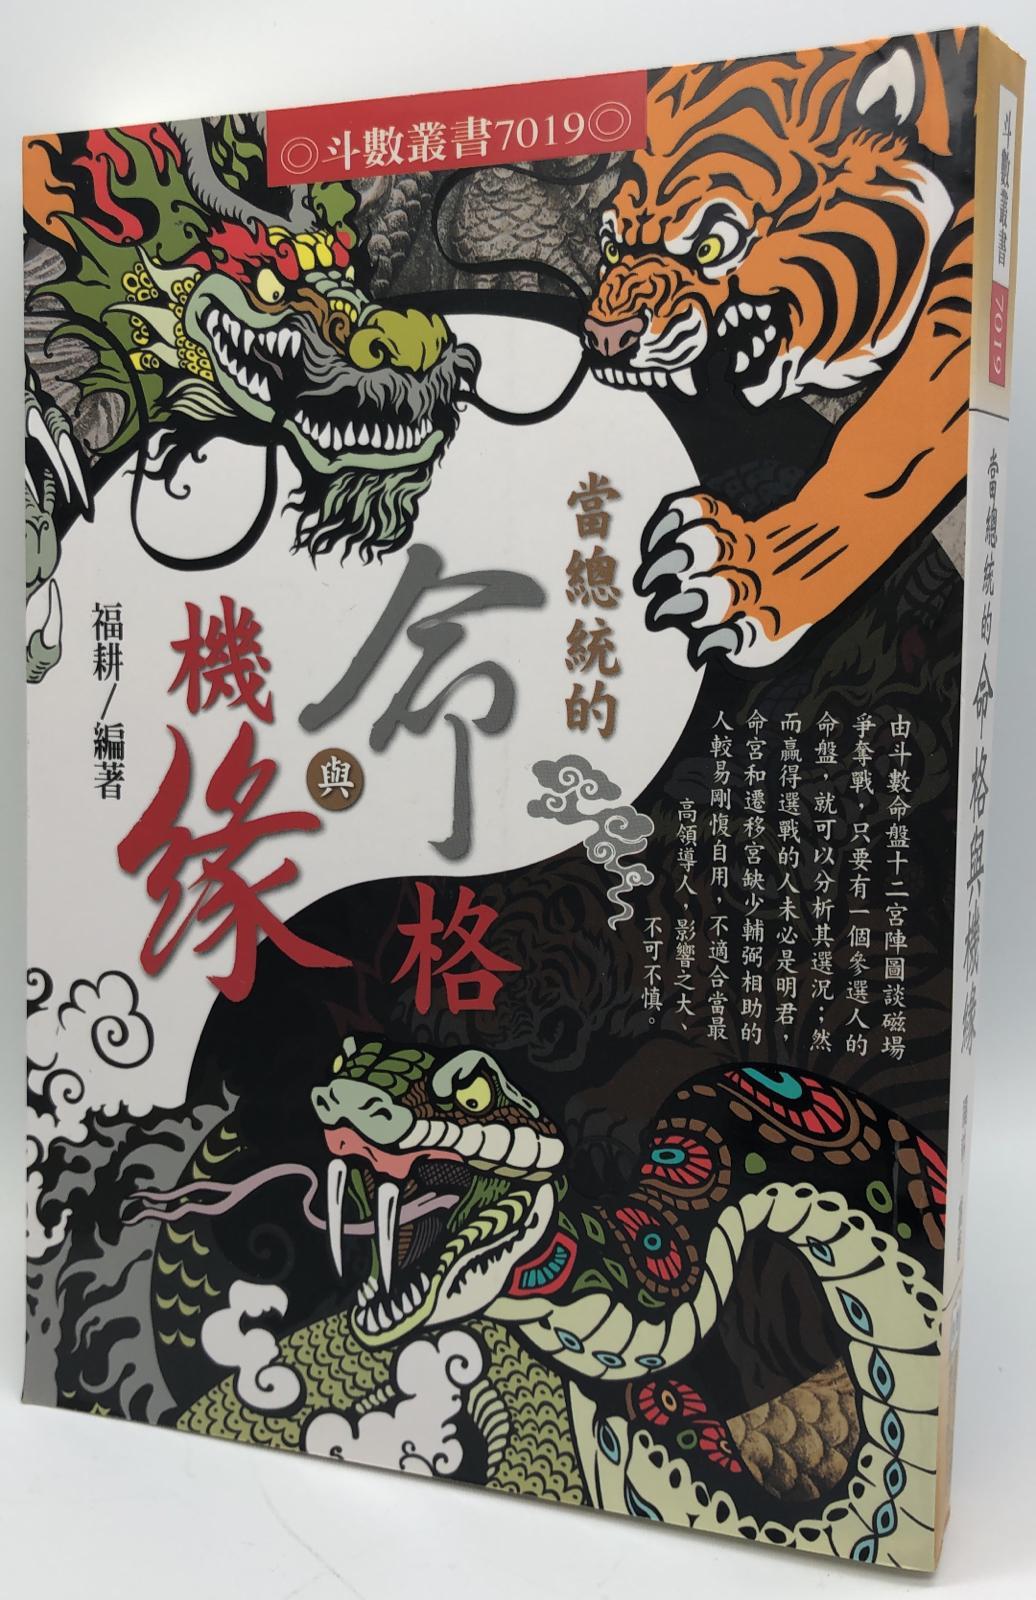 ◎斗數叢書7019◎
當總統的
命
格
與
機
緣
福耕/編著
由斗數命盤十二宮陣圖談磁場
爭奪戰，只要有一個參選人的
命盤，就可以分析其選況；然
而贏得選戰的人未必是明君，
命宮和遷移宮缺少輔弼相助的
人較易剛愎自用，不適合當最
高領導人，影響之大、
不可不慎。
斗數叢書
7019
當總統的命格與機緣